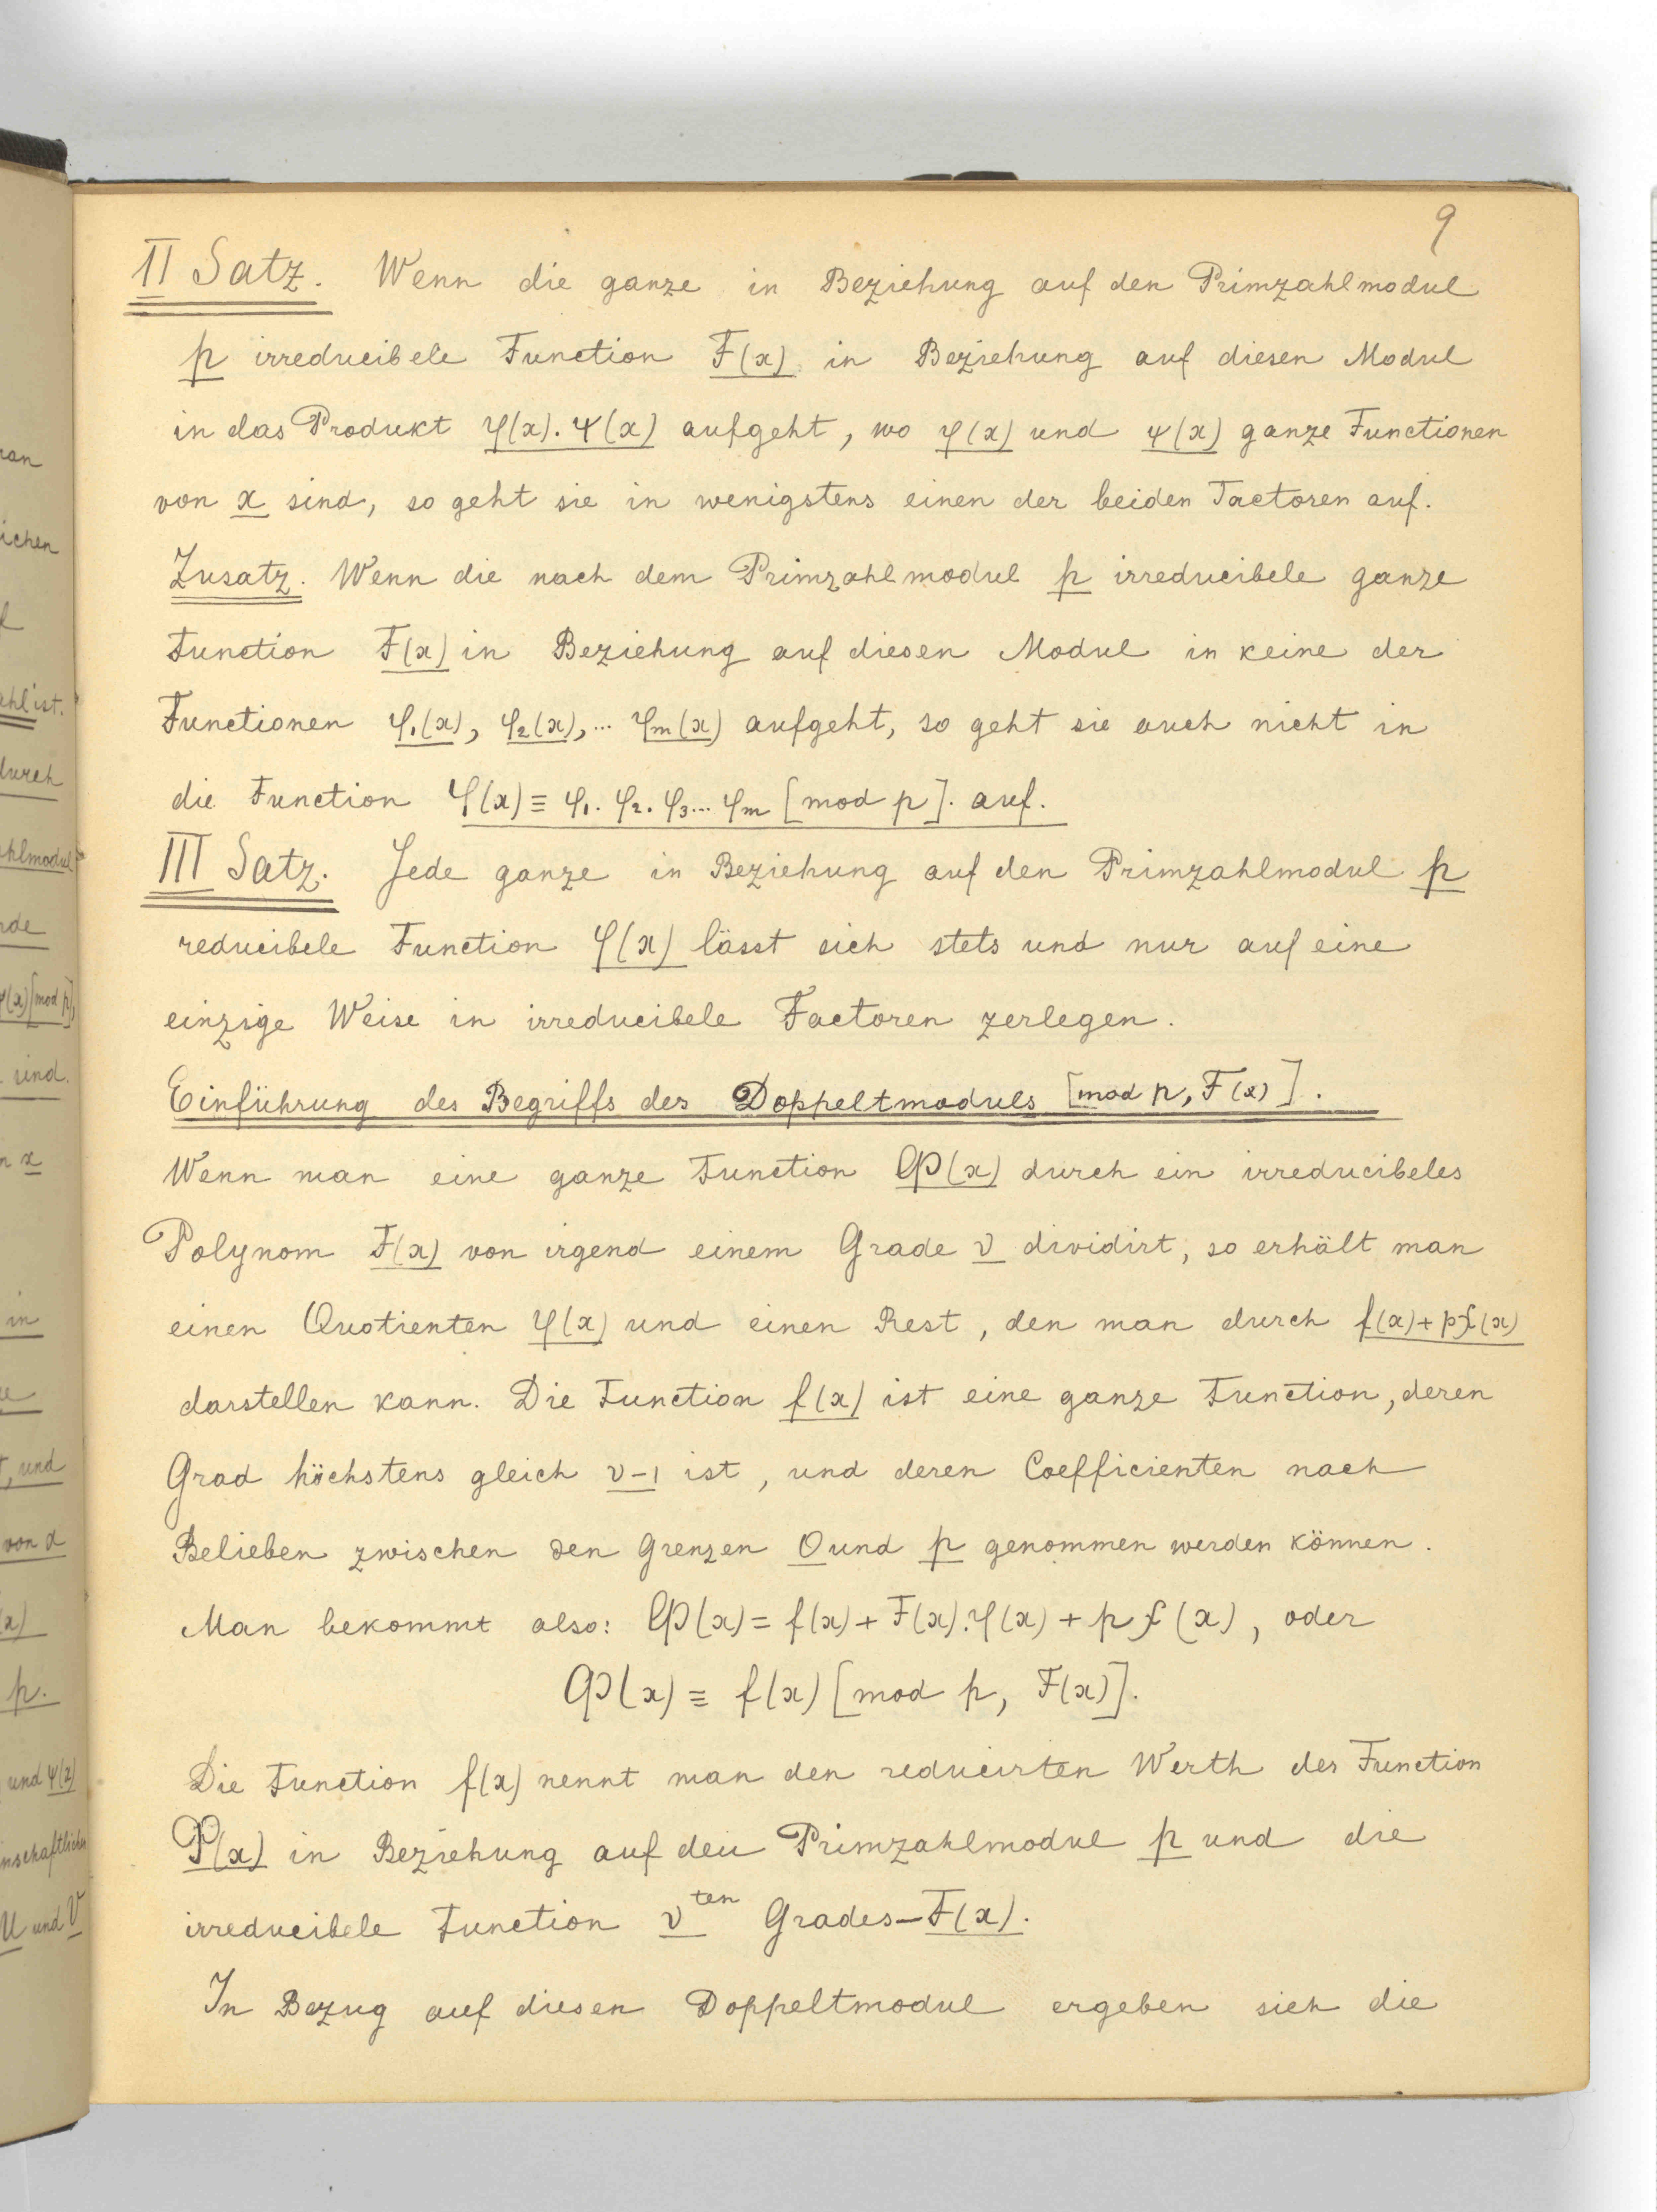 9
II Satz. Wenn die ganze in Beziehung auf den Primzahlmodul
p irreducibele Function F(x) in Beziehung auf diesen Modul
in das Produkt φ(x).ψ(x) aufgeht, wo φ(x) und ψ(x) ganze Functionen
von x sind, so geht sie in wenigstens einen der beiden Factoren auf.
Zusatz. Wenn die nach dem Primzahlmodul p irreducibele ganze
Function F(x) in Beziehung auf diesen Modul in keine der
Functionen φ₁(x), φ₂(x),... φm(x) aufgeht, so geht sie auch nicht in
die Function φ(x) ≡ φ₁. φ₂. φ₃... φm [mod p]. auf.
III Satz. Jede ganze in Beziehung auf den Primzahlmodul p
reducibele Function φ(x) lässt sich stets und nur auf eine
einzige Weise in irreducibele Factoren zerlegen.
Einführung des Begriffs des Doppeltmoduls [mod p, F(x)].
Wenn man eine ganze Function P(x) durch ein irreducibeles
Polynom F(x) von irgend einem Grade ν dividirt, so erhält man
einen Quotienten φ(x) und einen Rest, den man durch f(x)+pf(x)
darstellen kann. Die Function f(x) ist eine ganze Function, deren
Grad höchstens gleich ν-1 ist, und deren Coefficienten nach
Belieben zwischen den Grenzen 0 und p genommen werden können.
Man bekommt also: P(x) = f(x) + F(x).φ(x) + p f(x), oder
P(x) ≡ f(x) [mod p, F(x)].
Die Function f(x) nennt man den reducirten Werth der Function
P(x) in Beziehung auf den Primzahlmodul p und die
irreducibele Function ν ten Grades – F(x).
In Bezug auf diesen Doppeltmodul ergeben sich die